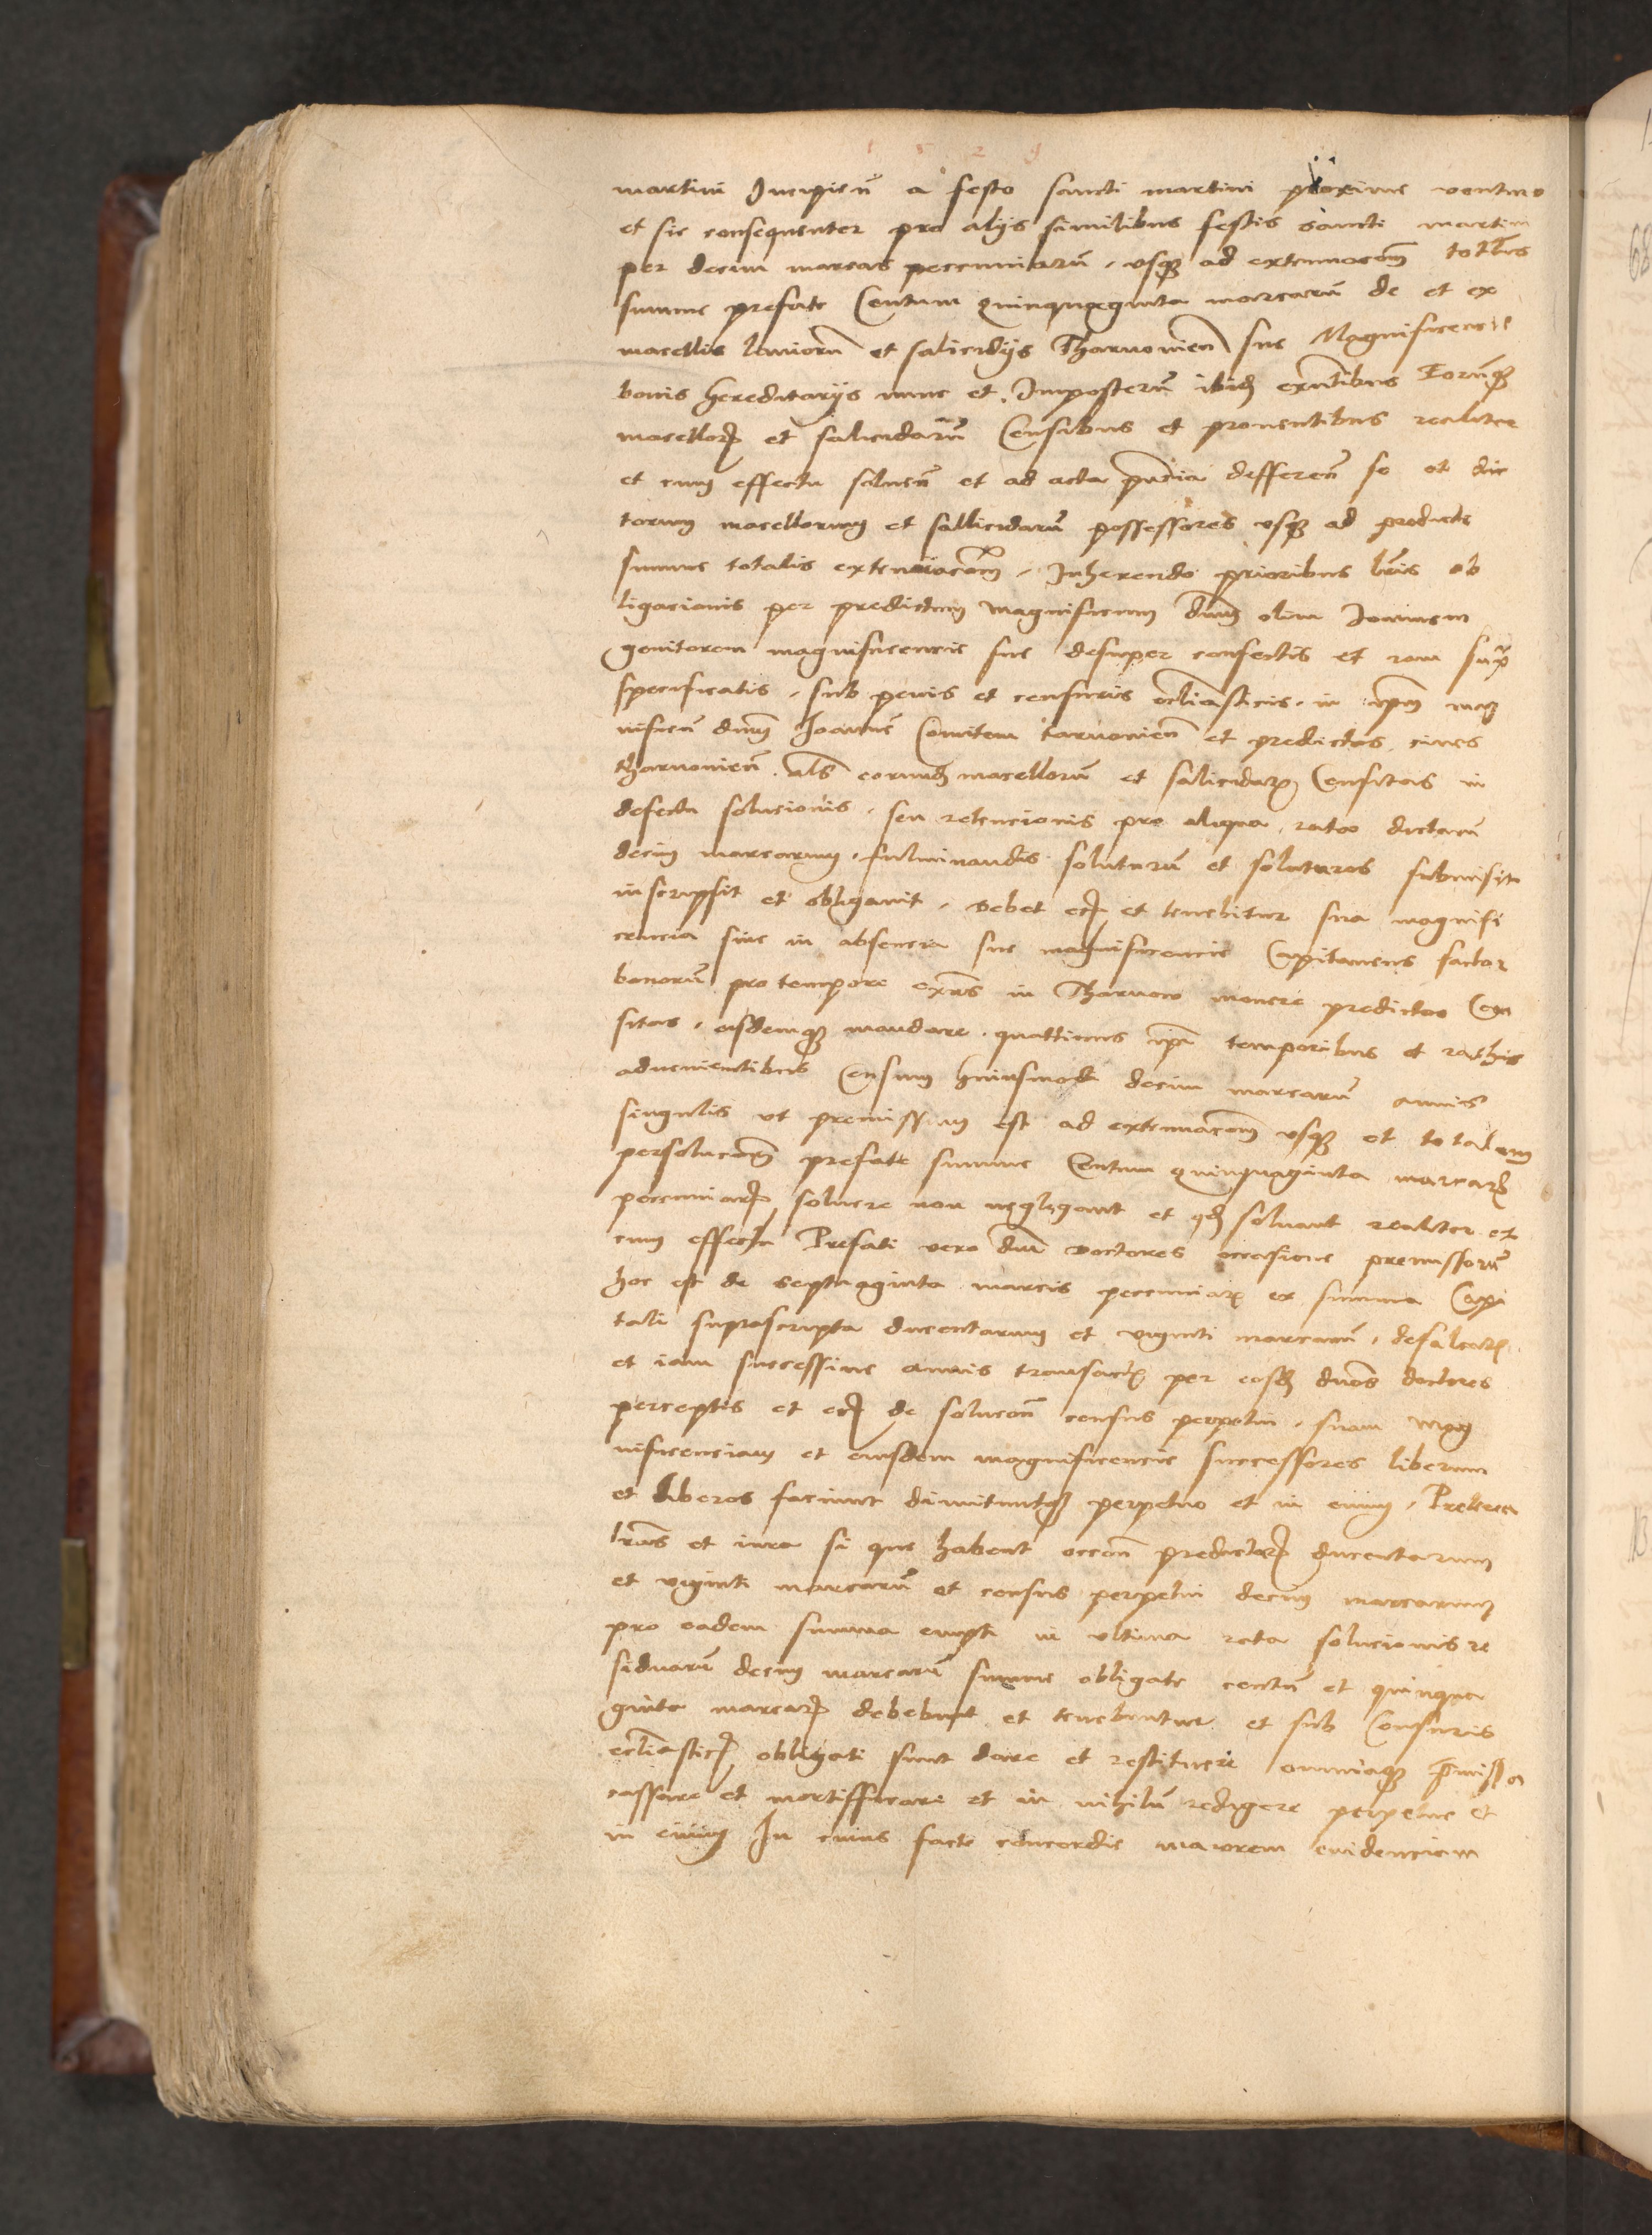 1529
martini Incipien̄ a festo sancti martini proxime venturo
et sic consequenter pro alijs similibus festis sancti martini
per decem marcas pecuniarū, vsqȝ ad extenuacōm totlis
summe prefate Centum quinquaginta marcarū de et ex
macellis laniorū et salicidijs Tharnouien̄ sue Magnificencie
bonis hereditarijs nunc et Imposterū ibidȝ existentibus Eorūqȝ
macellorȝ et salicidarū Censibus et prouentibus realiter
et cum effectu soluen̄ et ad acta pn̄cia defferen̄ se et dic
torum macellorum et sallicidarū possessores vsqȝ ad predicte
summe totalis extenuacōm, Inherendo prioribus lr̄is ob
ligacionis per predictum magnificum dn̄m olim Joannem
genitorem magnificencie sue desuper confectis et iam supra
specificatis, sub penis et censuris ecl̄iasticis, in ipm̄ mag
nificū dn̄m Joannē Comitem tarnouien̄ et predictos ciues
tharnouien̄ als eorundȝ macellorū et salicidarȝ Censitas in
defectu solucionis, seu retencionis pro aliqua ratis dictarū
decem marcarum, fulminandis soluturū et soluturos submisit
inscripsit et obligauit, Debet eciȝ et tenebitur sua magnifi
cencia siue in absencia sue magnificencie Capitaneus factor
bonorū pro tempore exn̄s in Tharnow monere predictos Cen
sitas, eisdemqȝ mandare, quattinus ipī temporibus et rathis
aduenientibus Censum huiusmodi decem marcarū annis
singulis vt premissum est ad extenuacōm vsqȝ et totalem
persolucōm prefate summe Centum quinquaginta marcarȝ
pecuniarȝ soluere non negligant et qdȝ soluant realiter et
cum effectu Prefati vero dn̄i Doctores occasione premissorū
hoc est de septuaginta marcis pecuniarȝ ex summa Capi
tali suprascripta ducentarum et viginti marcarū, defalcatȝ
et iam successiue annis transactȝ per eosdȝ dn̄os doctores
perceptis et eciȝ de solucōn census perpetui, suam mag
nificenciam et eiusdem magnificencie successores liberum
et liberos faciunt dimittuntqȝ perpetuo et in euum, Preterea
lr̄as et iura si que habent occōn predictarȝ ducentarum
et viginti marcarū et census perpetui decem marcarum
pro eadem summa empti in ultima rata solucionis re
siduarū decem marcarū summe obligate centū et quinqua
ginta marcarȝ debebunt et tenebuntur et sub Censuris
ecl̄iasticȝ obligati sunt dare et restituere omniaqȝ p̄missa
cassare et mortifficare et in nihilū redigere perpetue et
in euum In cuius facte concordie maiorem euidenciam